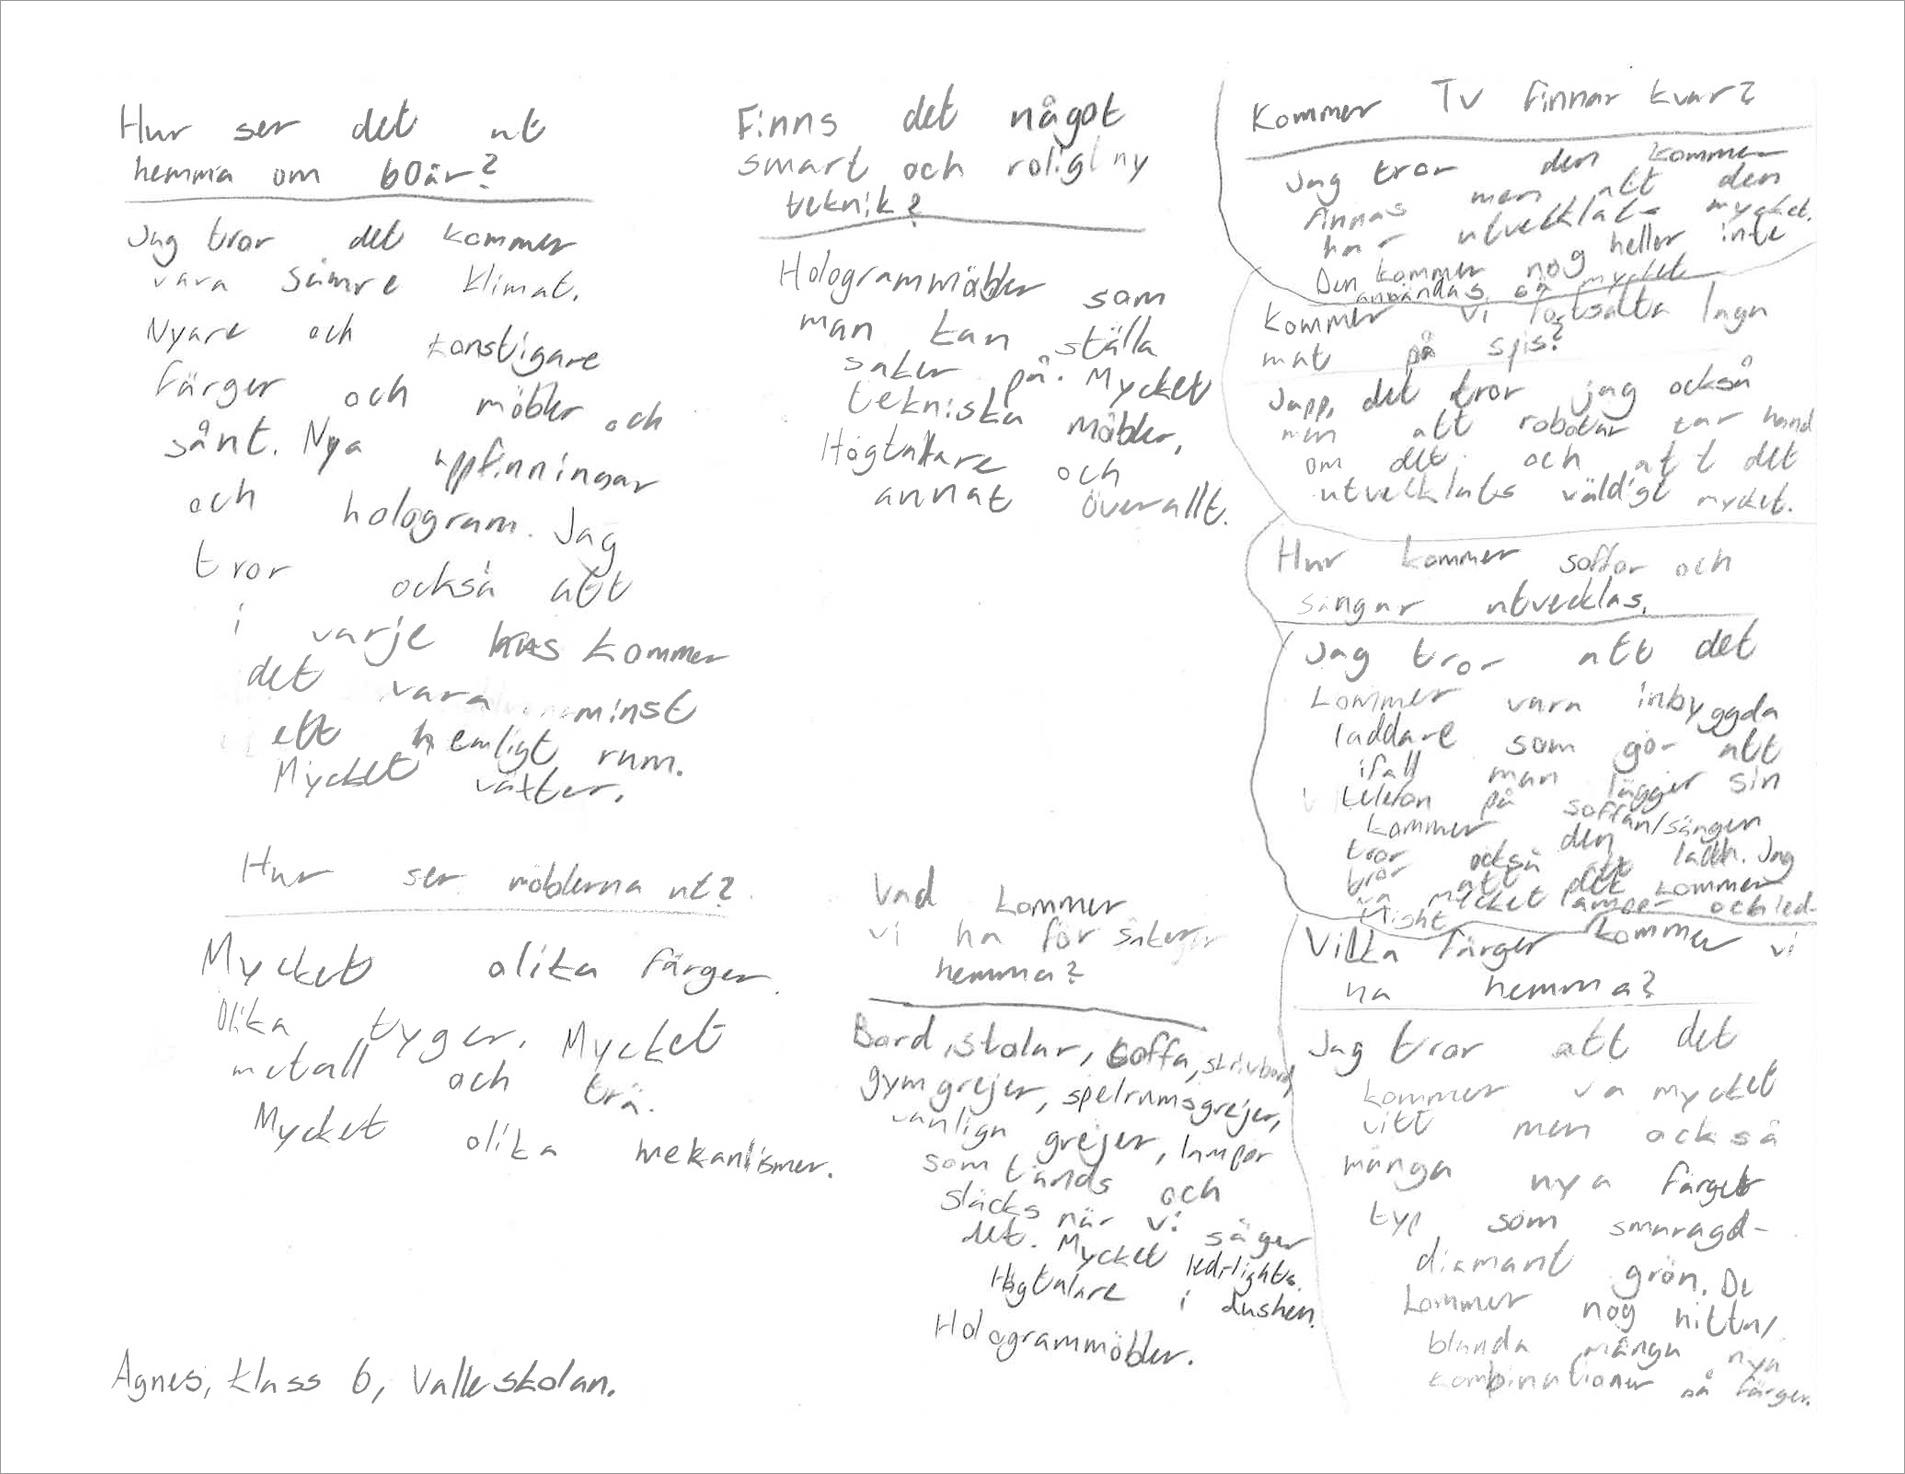 Hur ser det ut
hemma om 60år?
Jag tror det kommer
vara sämre klimat.
Nyare och konstigare
färger och möbler och
sånt. Nya uppfinningar
och hologram. Jag
tror också att
i varje hus kommer
det vara minst
ett hemligt rum.
Mycket växter.
Hur ser möblerna ut?
Mycket olika färger.
Olika tyger. Mycket
metall och trä.
Mycket olika mekanismer.
Agnes, klass 6, Valleskolan.
Finns det något
smart och roligt ny
teknik?
Hologrammöbler som
man kan ställa
saker på. Mycket
tekniska möbler.
Högtalare och
annat överallt.
Vad kommer
vi ha för saker
hemma?
Bord, stolar, soffa, skrivbord,
gymgrejer, spelrumsgrejer,
vanliga grejer, lampor
som tänds och
släcks när vi säger
det. Mycket ledlights.
Högtalare i dushen.
Hologrammöbler.
Kommer Tv finnar kvar?
Jag tror den kommer
finnas men att den
har utvecklats mycket.
Den kommer nog heller inte
användas så mycket
Kommer vi fortsätta laga
mat på spis?
Japp, det tror jag också
men att robotar tar hand
om det och att det
utvecklats väldigt mycket.
Hur kommer soffor och
sängar utvecklas.
Jag tror att det
kommer vara inbyggda
laddare som gör att
ifall man lägger sin
telefon på soffan/sängen
kommer den ladda. Jag
tror också att
tror att det kommer
va mycket lampor och led-
light
Vilka färger kommer vi
ha hemma?
Jag tror att det
kommer va mycket
vitt men också
många nya färger
typ som smaragd-
diamant grön. De
kommer nog hitta/
blanda många nya
kombinationer på färger.